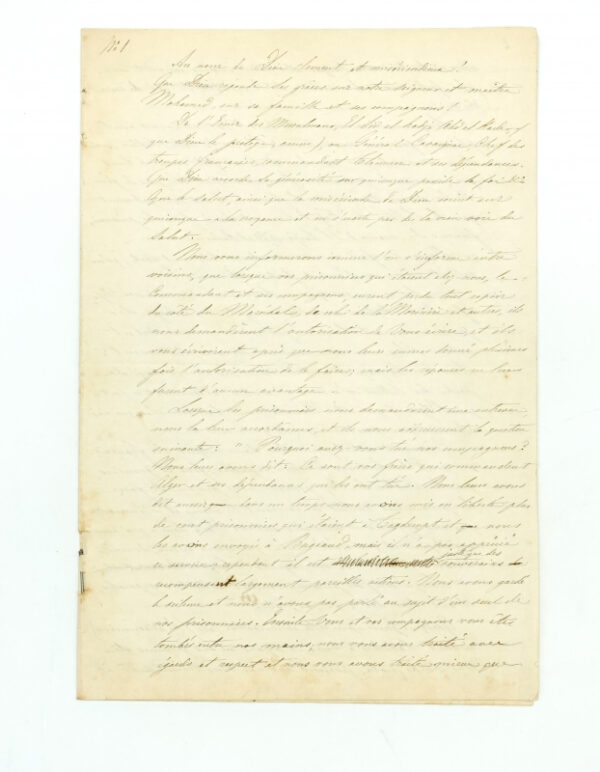 N°1
Au nom de Dieu clément et miséricordieux!
Que Dieu répande ses grâces sur notre seigneur et maître
Mohamed, sur sa famille et ses compagnons!
De l'Emir des Musulmans, El Hadj Abd el Kader,
que Dieu le protège, amen, au Général Cavaignac Chef des
troupes françaises, commandant Tlemcen et ses dépendances.
Que Dieu accorde sa générosité sur quiconque possède la foi
Que le salut, ainsi que la miséricorde de Dieu soient sur
quiconque a la croyance et ne s'écarte pas de la vraie voie du
Salut.
Nous vous informerons comme l'on s'informe entre
voisins, que lorsque vos prisonniers qui étaient chez nous, le
Commandant et ses compagnons, eurent perdu tout espoir
du côté du Maréchal, de celui de la Moricière et autres, ils
nous demandèrent l'autorisation de vous écrire, et ils
vous écrivirent après que nous leur eûmes donné plusieurs
fois l'autorisation de le faire; mais les réponses ne leur
furent d'aucun avantage.
Lorsque les prisonniers nous demandèrent une entrevue
nous la leur accordâmes, et ils nous adressèrent la question
suivante: "Pourquoi avez-vous tué nos compagnons?
Nous leur avons dit: Ce sont vos frères qui commandent
Alger et ses dépendances qui les ont tués. Nous leur avons
dit aussi que dans un temps nous avions mis en liberté plus
de cent prisonniers qui étaient à Tagdempt et que nous
les avions envoyés à Bugeaud, mais il n'a pas apprécié
ce service; cependant il est que des souverains
récompensent largement pareilles actions. Nous avons gardé
le silence et nous n'avons pas parlé au sujet d'un seul de
nos prisonniers. Ensuite vous et vos compagnons vous êtes
tombés entre nos mains, nous vous avons traité avec
égards et respect et nous vous avons traité mieux que